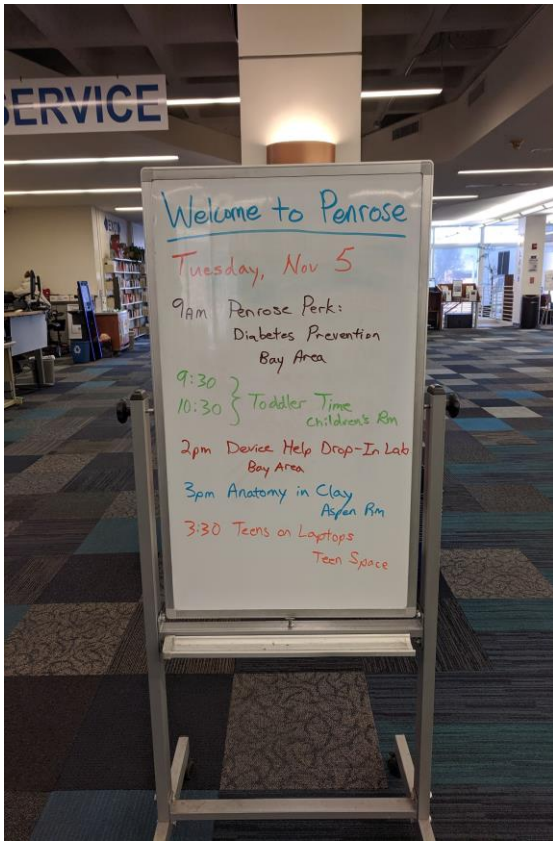 SERVICE
Welcome to Penrose
Tuesday, Nov 5
9AM Penrose Perk:
Diabetes Prevention
Bay Area
9:30
10:30 } Toddler Time
Children's Rm
2pm Device Help Drop-In Lab
Bay Area
3pm Anatomy in Clay
Aspen Rm
3:30 Teens on Laptops
Teen Space